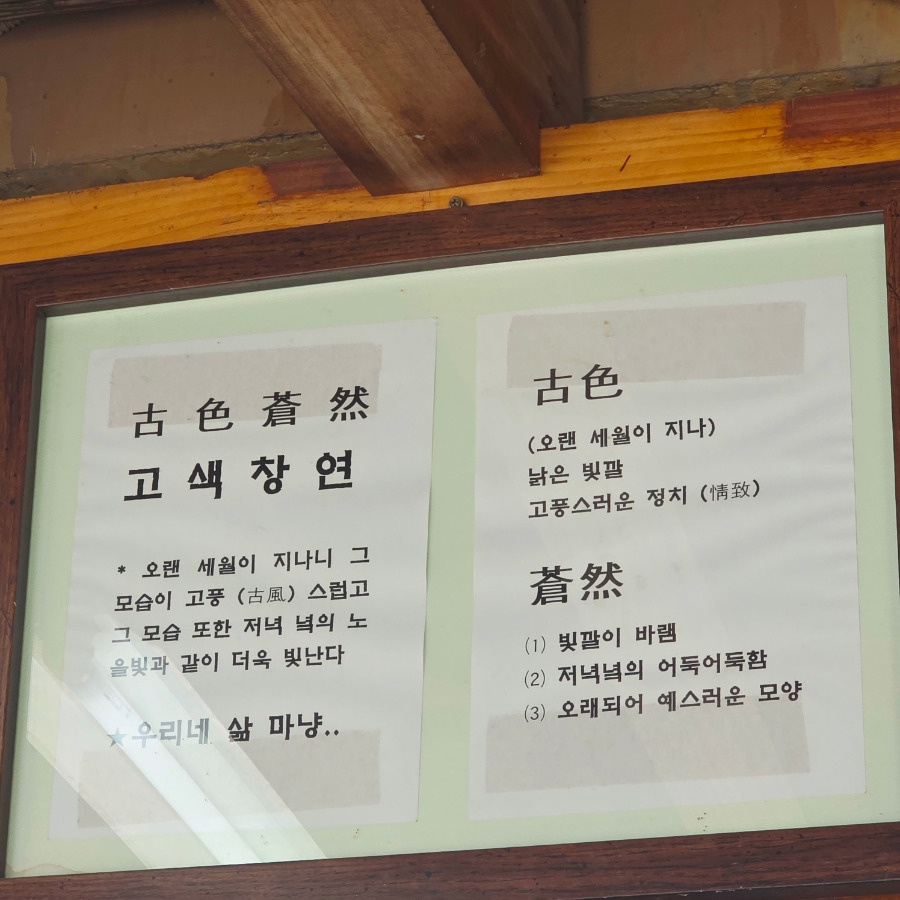 古色蒼然
고색창연
* 오랜 세월이 지나니 그
모습이 고풍 (古風) 스럽고
그 모습 또한 저녁 녘의 노
을빛과 같이 더욱 빛난다
★우리네 삶 마냥..
古色
(오랜 세월이 지나)
낡은 빛깔
고풍스러운 정치 (情致)
蒼然
(1) 빛깔이 바램
(2) 저녁녘의 어둑어둑함
(3) 오래되어 예스러운 모양